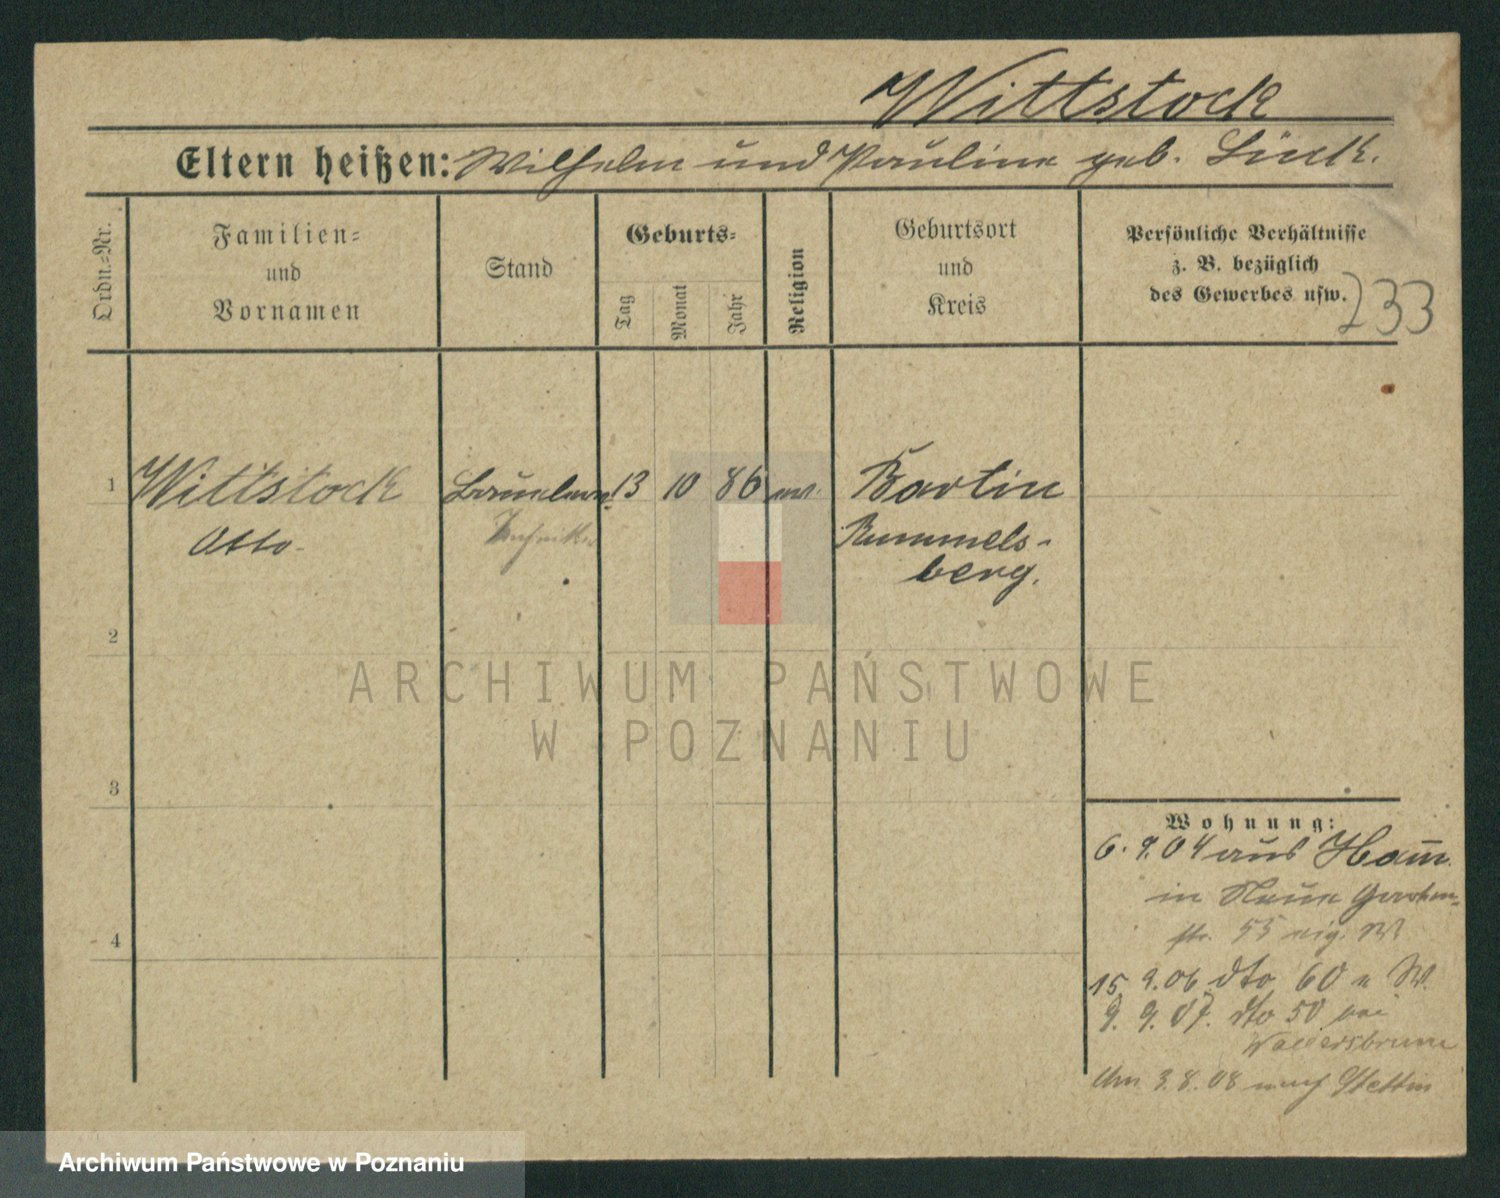 Wittstock
Eltern heißen: Wilhelm und Pauline geb. Lück.
Ordn.-Nr.
Familien-
und
Vornamen
Stand
Geburts-
Tag
Monat
Jahr
Religion
Geburtsort
und
Kreis
Persönliche Verhältnisse
z. B. bezüglich
des Gewerbes usw.
233
1 Wittstock 13 10 86 ev. Bartin
Otto. Techniker Rummels-
berg.
2
ARCHIWUM PAŃSTWOWE
W POZNANIU
3
4
Wohnung:
6. 9. 04 aus Ham̅.
in Neue Garten-
str. 55 eig. W
15. 9. 06 dto 60 e W.
9. 9. 07. dto 50 bei
Um 3. 8. 08 nach Stettin
Archiwum Państwowe w Poznaniu